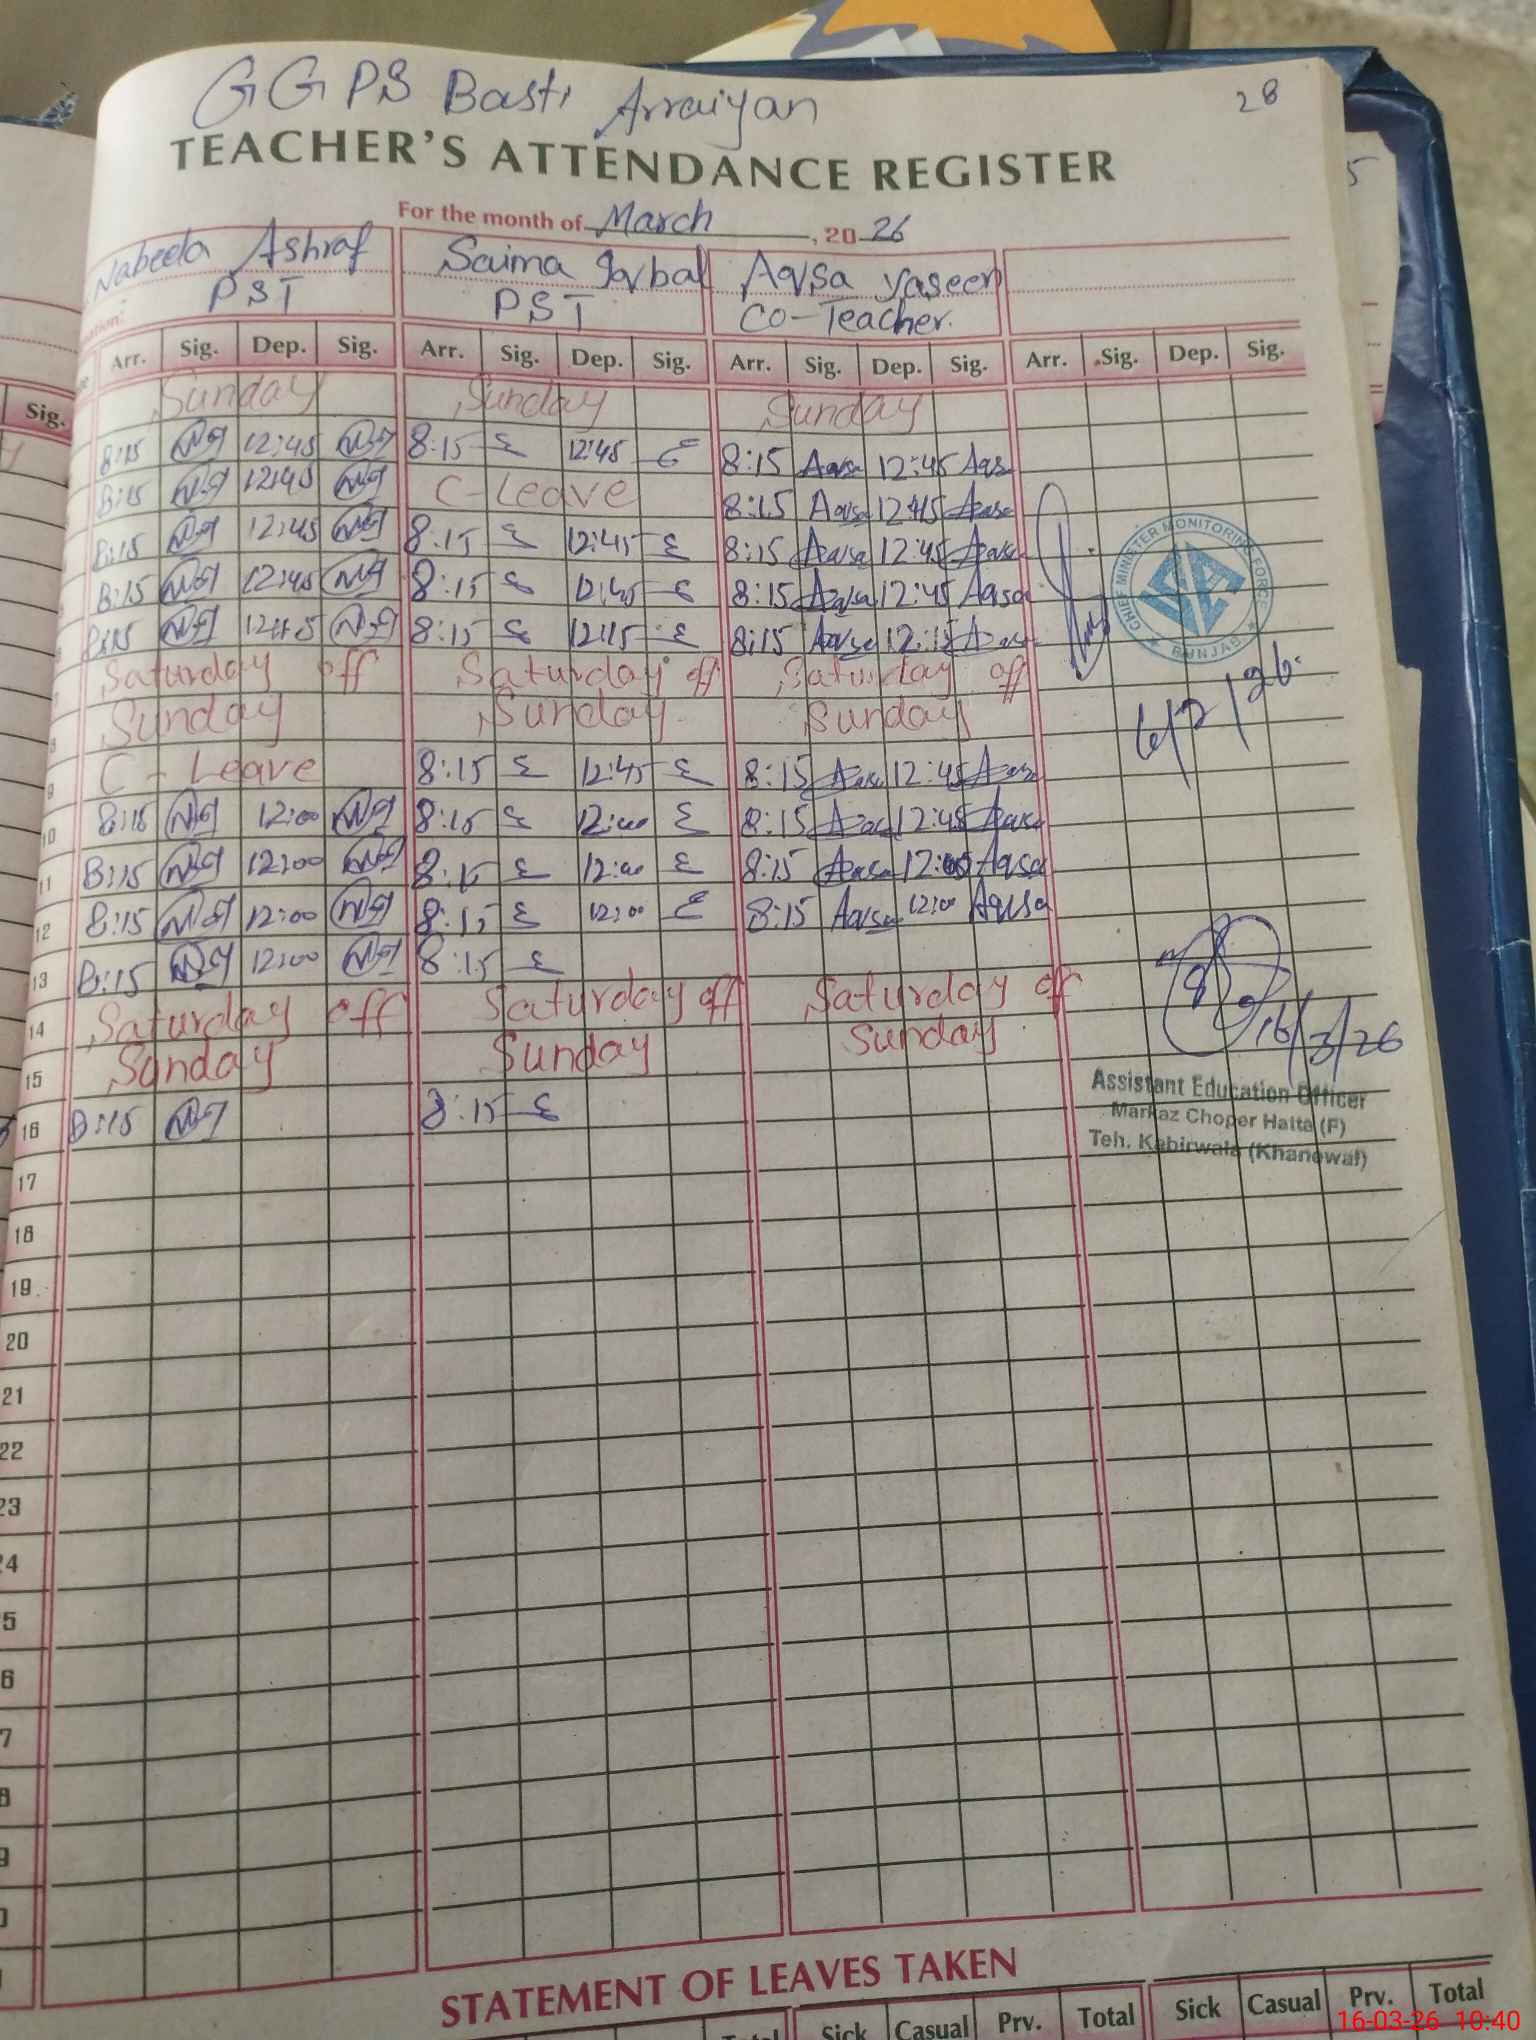 28
GGPS Basti Arraiyan
TEACHER'S ATTENDANCE REGISTER
For the month of March, 2026
Nabeela Ashraf Saima Iqbal Aqsa yaseen
PST PST Co-Teacher.
Arr. Sig. Dep. Sig. Arr. Sig. Dep. Sig. Arr. Sig. Dep. Sig. Arr. Sig. Dep. Sig.
Sunday Sunday Sunday
8:15 12:45 8:15 12:45 8:15 Aqsa 12:45 Aqs
8:15 12:45 C-Leave 8:15 Aqsa 12:45 Aqsa
8:15 12:45 8:15 12:45 8:15 Aqsa 12:45 Aqsa
8:15 12:45 8:15 12:45 8:15 Aqsa 12:45 Aqsa
8:15 8:15 12:15 8:15 Aqsa 12:15 Aqsa
Saturday off Saturday off Saturday off
Sunday Sunday Sunday
9 C-Leave 8:15 12:45 8:15 Aqsa 12:45 Aqsa
10 8:15 12:00 8:15 12:00 8:15 Aqsa 12:45 Aqsa
11 8:15 12:00 8:15 12:00 8:15 Aqsa 12:00 Aqsa
12 8:15 12:00 8:15 12:00 8:15 Aqsa 12:00 Aqsa
13 8:15 12:00 8:15
14 Saturday off Saturday off Saturday off
15 Sunday Sunday Sunday
16 8:15 8:15
17
18
19
20
21
22
23
24
CHIEF MINISTER MONITORING FORCE
PUNJAB
6/2/26
16/3/26
Assistant Education Officer
Markaz Choper Hatta (F)
Teh. Kabirwala (Khanewal)
STATEMENT OF LEAVES TAKEN
Total Sick Casual Prv. Total Sick Casual Prv. Total
16-03-26 10:40